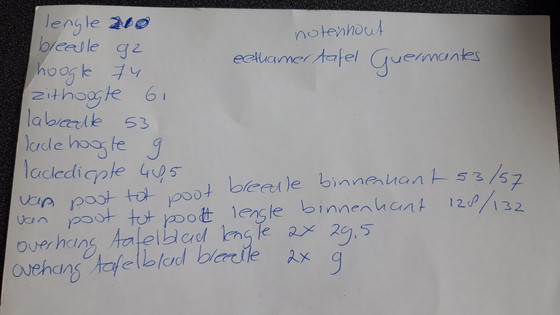 lengte 210
breedte 92
hoogte 74
zithoogte 61
labreedte 53
ladehoogte 9
ladediepte 48,5
van poot tot poot breedte binnenkant 53/57
van poot tot poott lengte binnenkant 128/132
overhang tafelblad lengte 2x 29,5
ovehang tafelblad breedte 2x 9
notenhout
eetkamertafel Guermantes